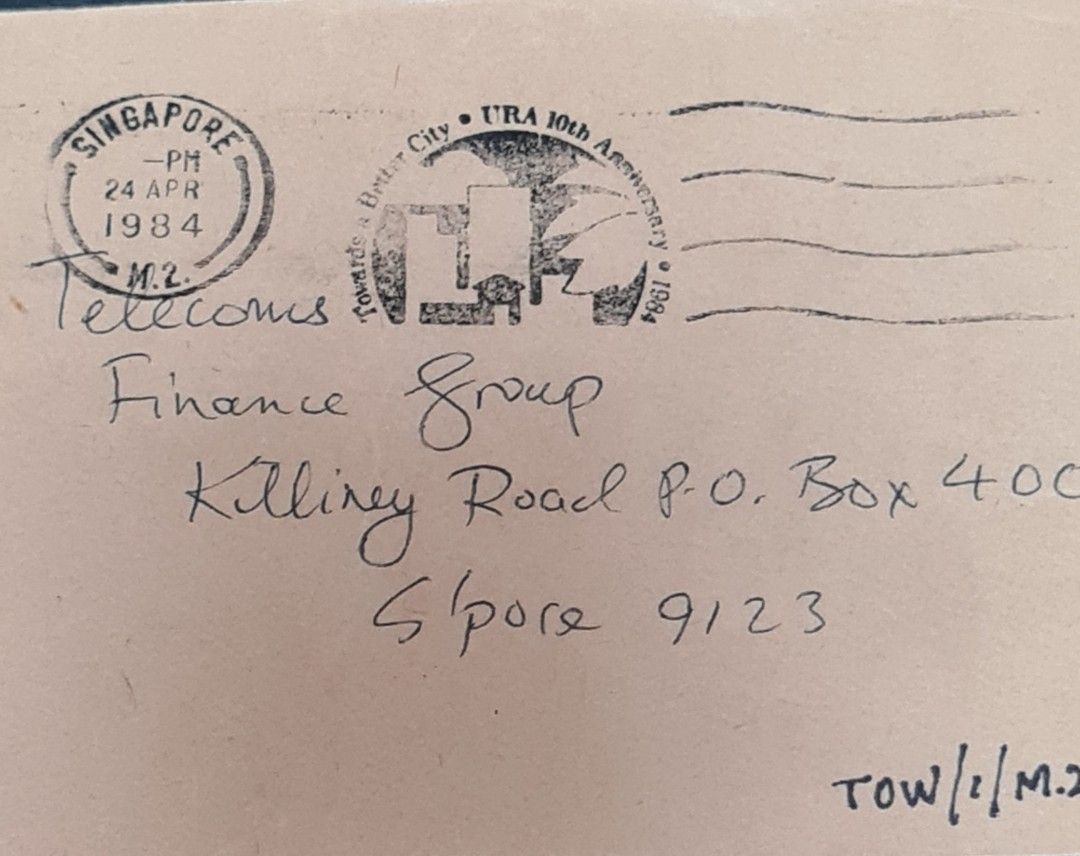 SINGAPORE
–PM
24 APR
1984
M.2.
Towards a Better City • URA 10th Anniversary • 1984
Telecoms
Finance Group
Killiney Road P.O. Box 400
S'pore 9123
TOW/1/M.2